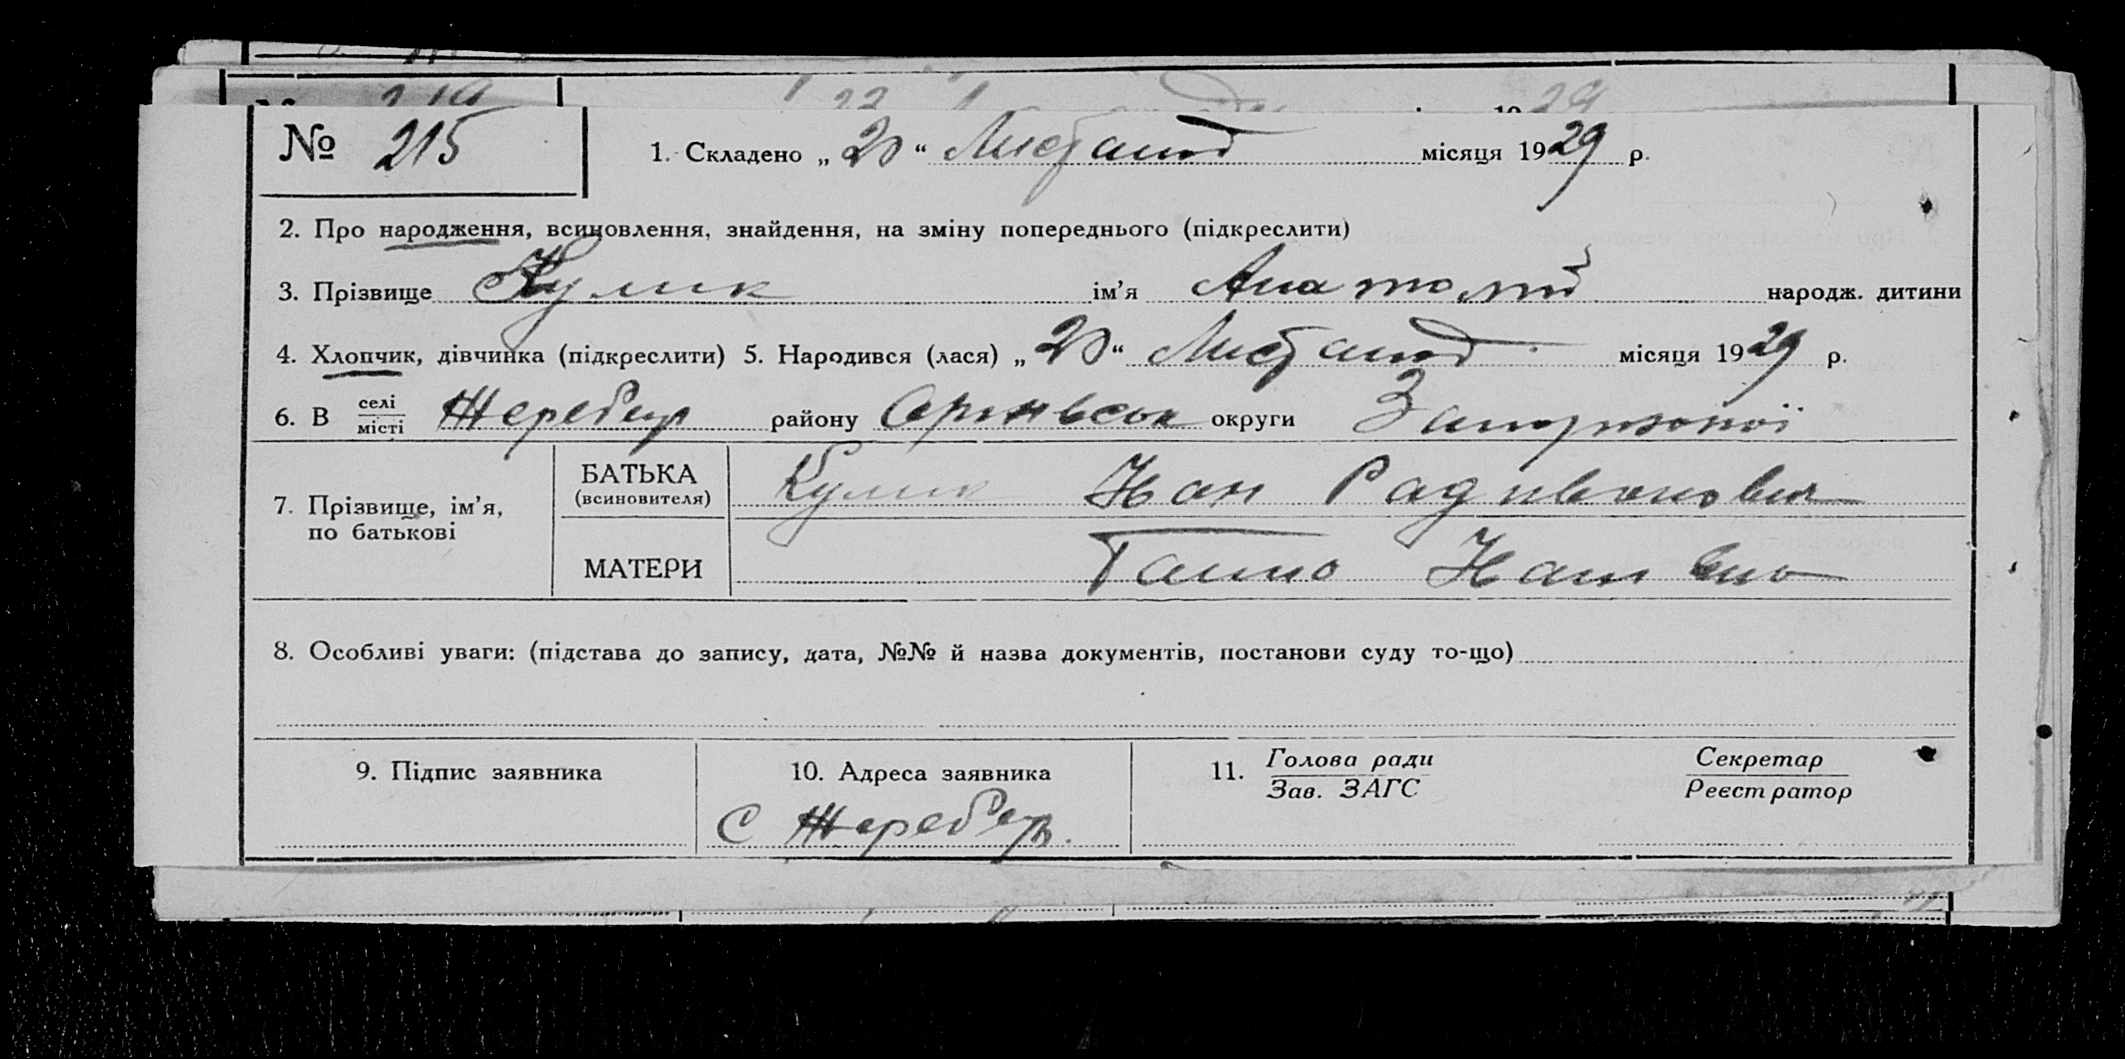 № 215
1. Складено „ 20 “ Листапад місяця 1929 р.
2. Про народження, всиновлення, знайдення, на зміну попереднього (підкреслити)
3. Прізвище Кулик ім’я Анатолій народж. дитини
4. Хлопчик, дівчинка (підкреслити) 5. Народився (лася) „ 20 “ Листапад місяця 1929 р.
6. В селі місті Жеребец району округи Запоризької
7. Прізвище, ім’я, по батькові
БАТЬКА (всиновителя) Кулик Радивонович
МАТЕРИ Ганна
8. Особливі уваги: (підстава до запису, дата, №№ й назва документів, постанови суду то-що)
9. Підпис заявника
10. Адреса заявника
С Жеребец.
11. Голова ради Секретар
Зав. ЗАГС Реєстратор